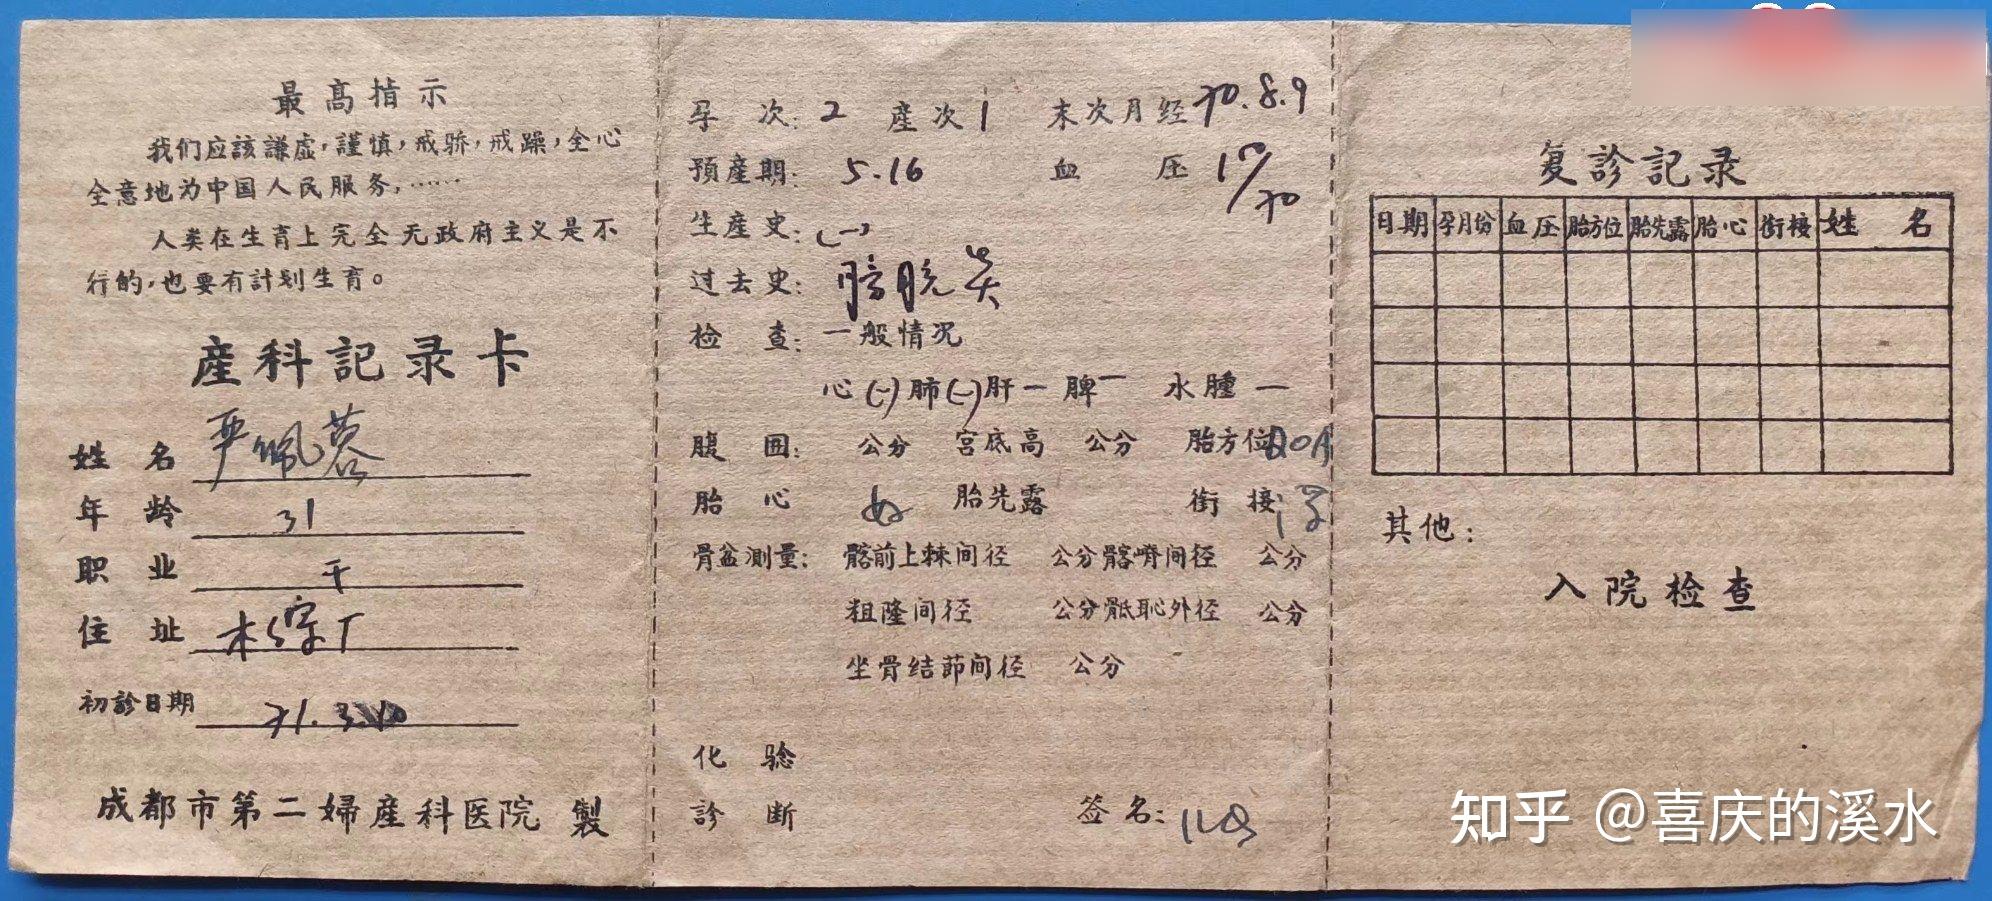 最高指示
我们应該謙虚,謹慎,戒骄,戒躁,全心
全意地为中国人民服务,……
人类在生育上完全无政府主义是不
行的,也要有計划生育。
産科記录卡
姓名 严佩蓉
年龄 31
职业 干
住址
初診日期 71.3.10
成都市第二婦産科医院 製
孕次: 2 産次 1 末次月经 70.8.9
預産期: 5.16 血压
生産史: (一)
过去史: 膀胱炎
检查: 一般情况
心(-)肺(-)肝一脾一 水腫 一
腹囲: 公分 宫底高 公分 胎方位 ROA
胎心 胎先露 銜接
骨盆測量: 髂前上棘间径 公分 髂嵴间径 公分
粗隆间径 公分 骶恥外径 公分
坐骨结節间径 公分
化验
診断 签名:
复診記录
日期 孕月份 血压 胎方位 胎先露 胎心 銜接 姓名
其他:
入院检查
知乎 @喜庆的溪水